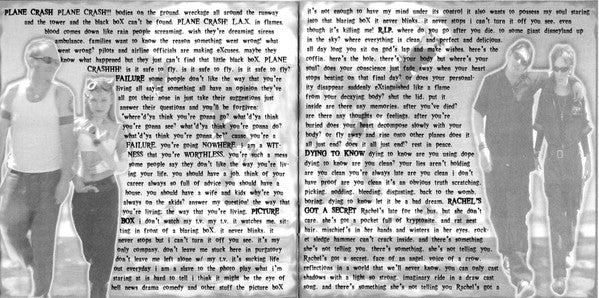 PLANE CRASH PLANE CRASH!! bodies on the ground. wreckage all around the runway
and the tower and the black boX can't be found. PLANE CRASH! L.A.X. in flames.
blood comes down like rain people screaming. wish they're dreaming sirens
ambulances. families want to know the reason something went wrong! what
went wrong? pilots and airline officials are making eXcuses. maybe they
know what happened but they just can't find that little black boX. PLANE
CRASHHH! is it safe to fly. is it safe to fly. is it safe to fly?
FAILURE some people don't like the way that you're
living all saying something all have an opinion they've
all got their nose in just take their suggestions just
answer their questions and you'll be forgiven:
"where'd'ya think you're gonna go? what'd'ya think
you're gonna see? what'd'ya think you're gonna do?
what'd'ya think you're gonna be?" cause you're a
FAILURE. you're going NOWHERE. i am a WIT-
NESS that you're WORTHLESS. you're such a mess
some people say they don't like the way you're liv-
ing your life. you should have a job. think of your
career always so full of advice you should have a
house. you should have a wife and kids why're you
always on the skids? answer my question! the way that
you're living. the way that you're living. PICTURE
BOX i don't watch my t.v. my t.v. it watches me. sit-
ting in front of a blaring boX. it never blinks. it
never stops but i can't turn it off you see. it's my
only company. don't leave me stuck here in purgatory
don't leave me left alone w/ my t.v. it's sucking life
out everyday i am a slave to the photo play what i'm
staring at is hard to tell i think it might be the eye of
hell news drama comedy and other stuff the picture boX
it's not enough to have my mind under its control it also wants to possess my soul staring
into that blaring boX it never blinks.. it never stops i can't turn it off you see. even
though it's killing me! R.I.P. where do you go after you die. to some giant disneyland up
in the sky? where everything is clean. and perfect and delicious.
all day long you sit on god's lap and make wishes. here's the
coffin. here's the hole. there's your body but where's your
soul? does your conscience just fade away when your heart
stops beating on that final day? or does your personal-
ity disappear suddenly eXtinguished like a flame
from your decaying body? shut the lid. put it
inside are there any memories. after you've died?
are there any thoughts or feelings. after you're
buried does your heart decompose slowly with your
body? or fly away and rise onto other planes does it
all just end? does it all just end? rest in peace.
DYING TO KNOW dying to know are you using dope
dying to know are you clean? your lies aren't holding
are you clean you're always late are you clean i don't
have proof are you clean it's an obvious truth scratching.
picking. nodding. bleeding. disgusting. back to the womb.
boring. dying to know let it be a bad dream. RACHEL'S
GOT A SECRET Rachel's late for the bus. but she don't
care. she's got a pocket full of kryptonite. and rat nest
hair. mischief's in her hands and winters in her eyes. rock-
et sledge hammer can't crack inside. and there's something
she's not telling you. there's something. she's not telling you.
Rachel's got a secret. face of an angel. voice of a crow.
reflections in a world that we'll never know. you can only cast
shadows with a light so strong. imaginary ride in a draw cast
song. and there's something she's not telling you Rachel's got a